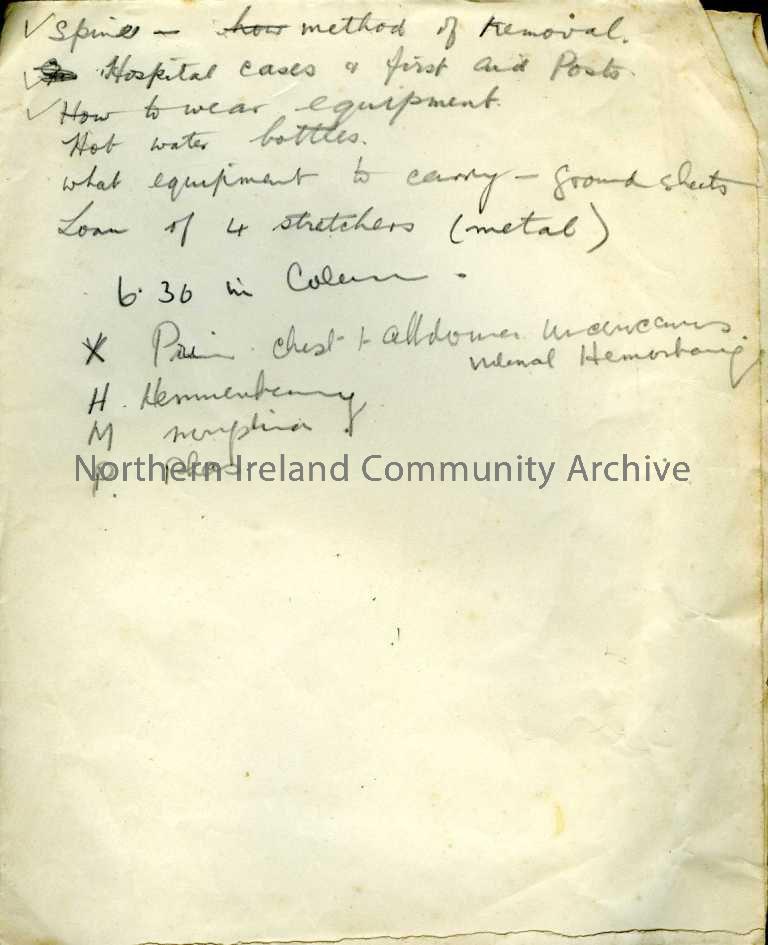 ✓ Spines – how method of Removal.
✓ Hospital cases & first aid Posts.
✓ How to wear equipment.
Hot water bottles.
what equipment to carry – ground sheets
Loan of 4 stretchers (metal)
6.30 in
X chest + Abdomen
Hemorrhage
H.
M morphia
P.
Northern Ireland Community Archive